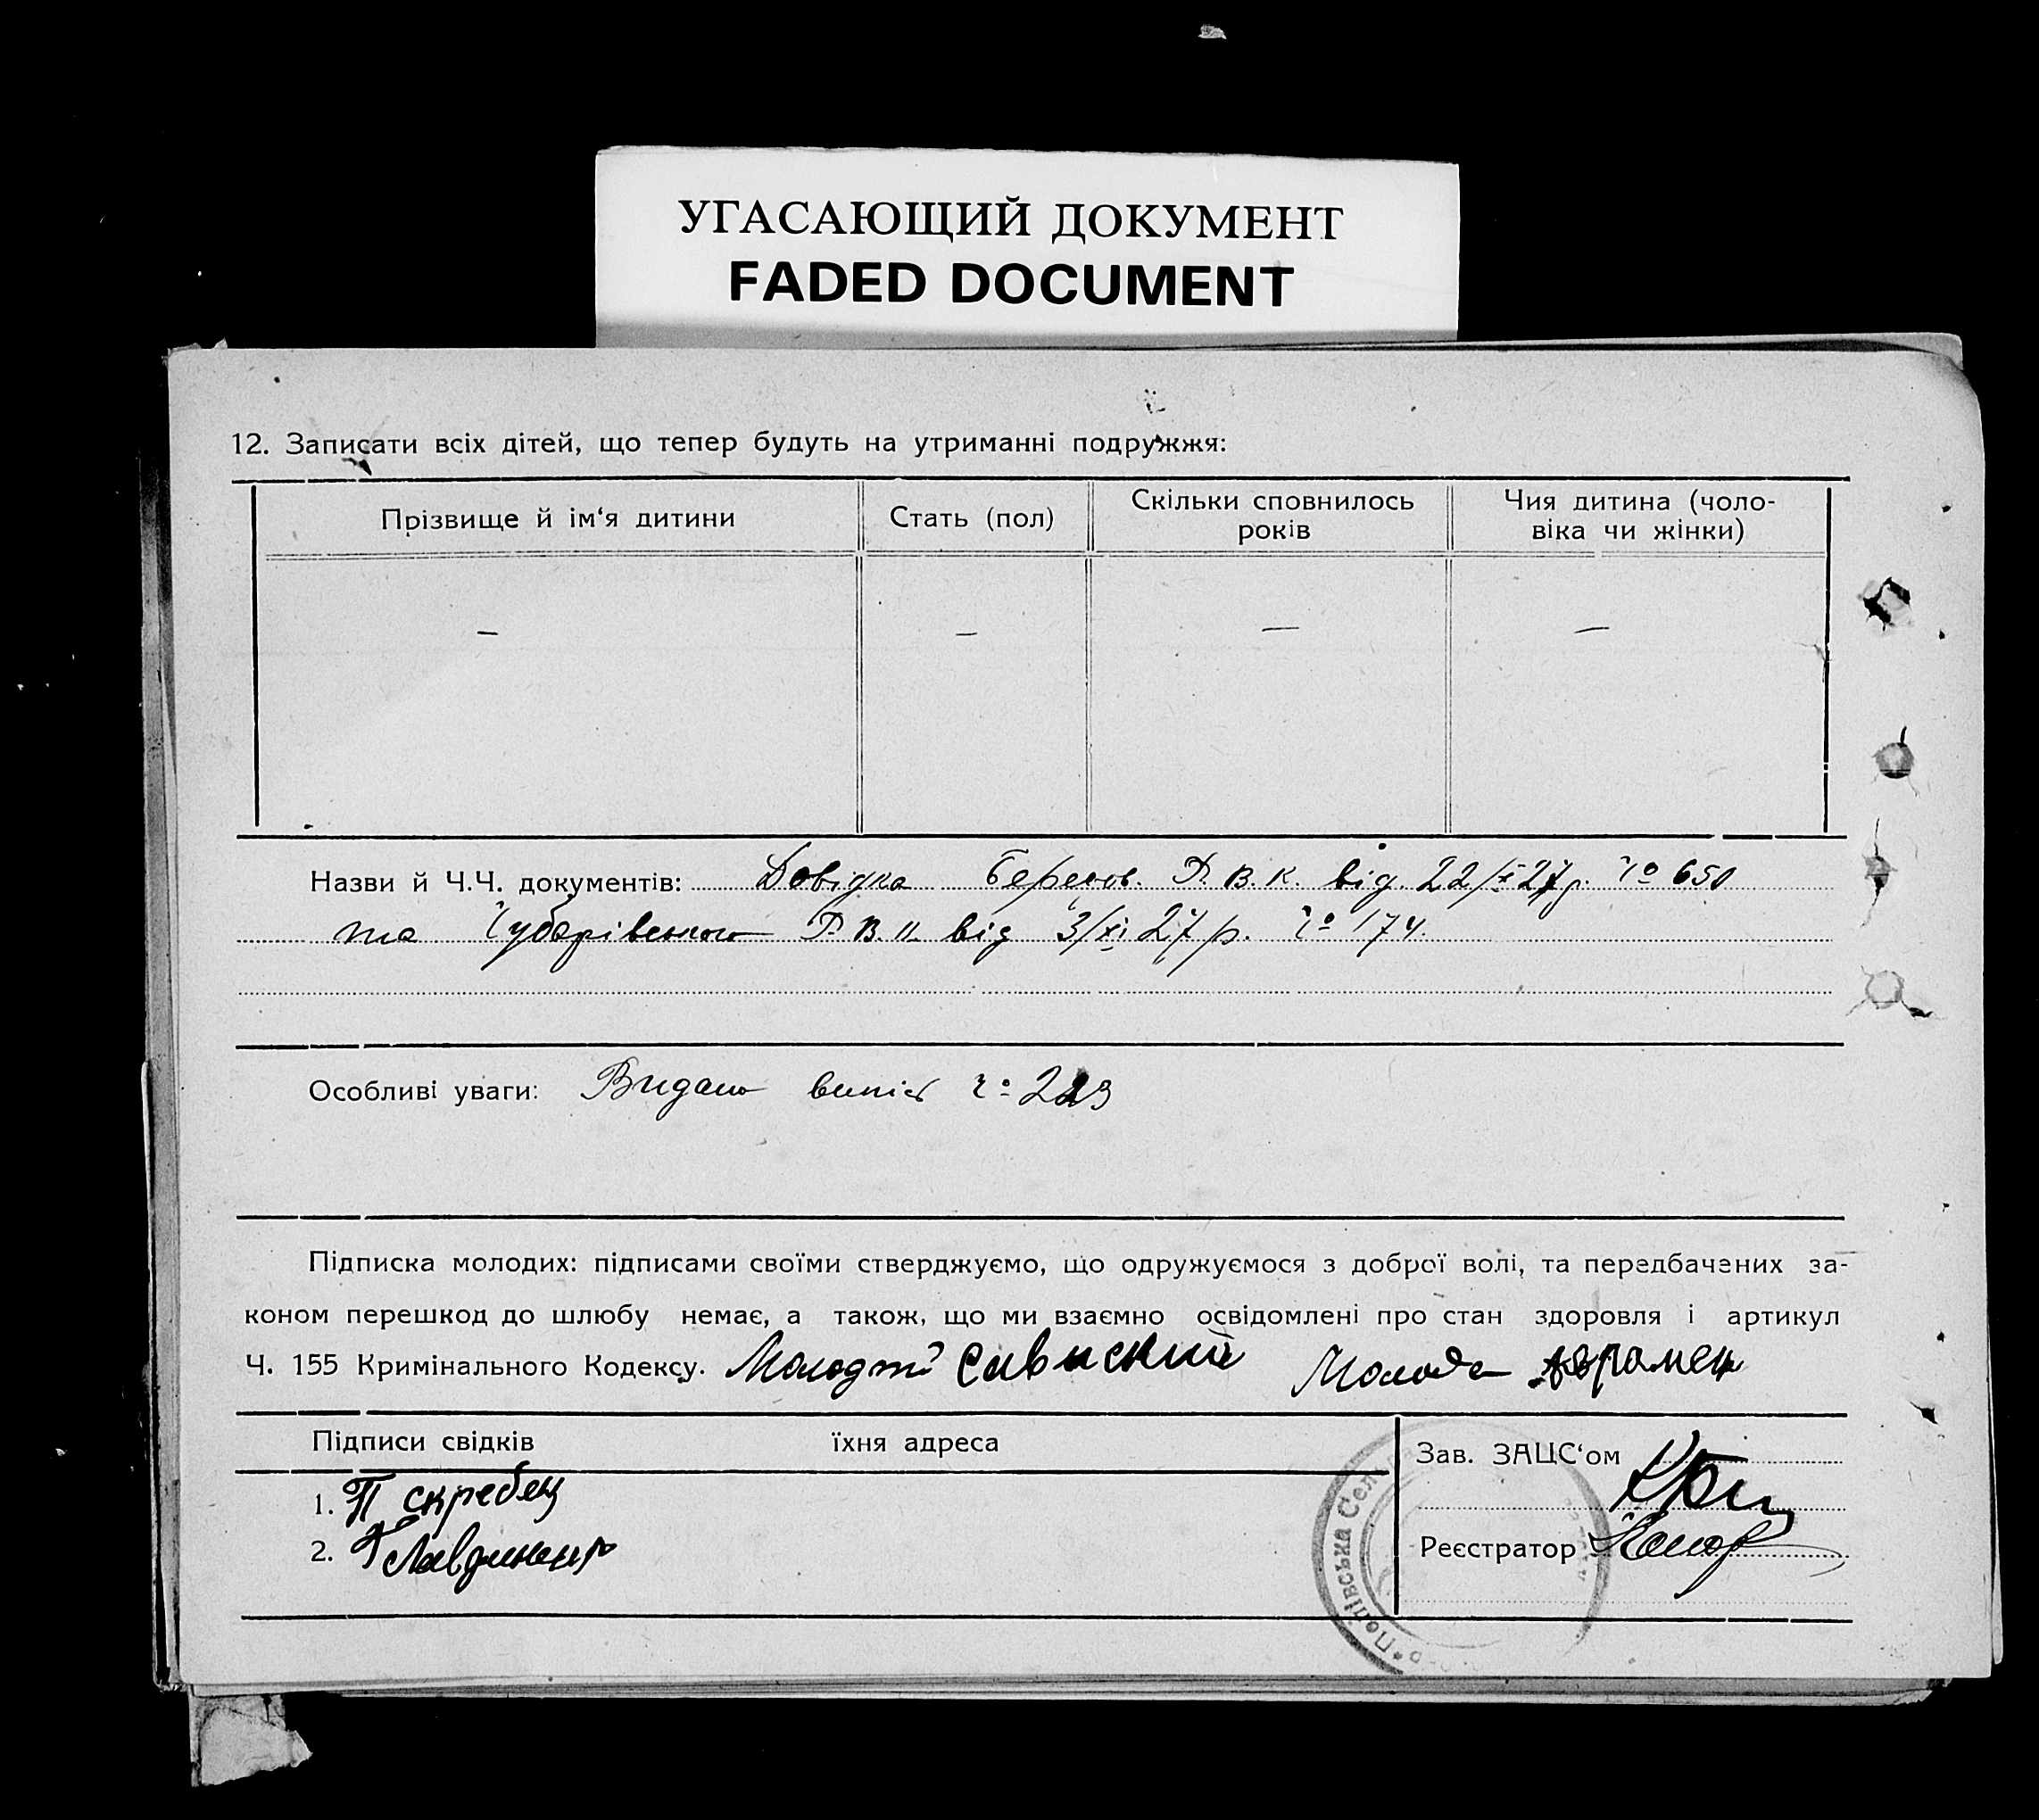 УГАСАЮЩИЙ ДОКУМЕНТ
FADED DOCUMENT
12. Записати всіх дітей, що тепер будуть на утриманні подружжя:
Прізвище й ім‘я дитини
Стать (пол)
Скільки сповнилось
років
Чия дитина (чоло-
віка чи жінки)
— — — —
Назви й Ч.Ч. документів: Довідка В. К. від 22/ 27 р. 650
та В. від 3/XI 27 р. 174.
Особливі уваги: Видано випис 223
Підписка молодих: підписами своїми стверджуємо, що одружуємося з доброї волі, та передбачених за-
коном перешкод до шлюбу немає, а також, що ми взаємно освідомлені про стан здоровля і артикул
Ч. 155 Кримінального Кодексу. Молодий Савиский Молода
Підписи свідків їхня адреса
1. П скребец
2.
Зав. ЗАЦС‘ом
Реєстратор
Попівська Сел